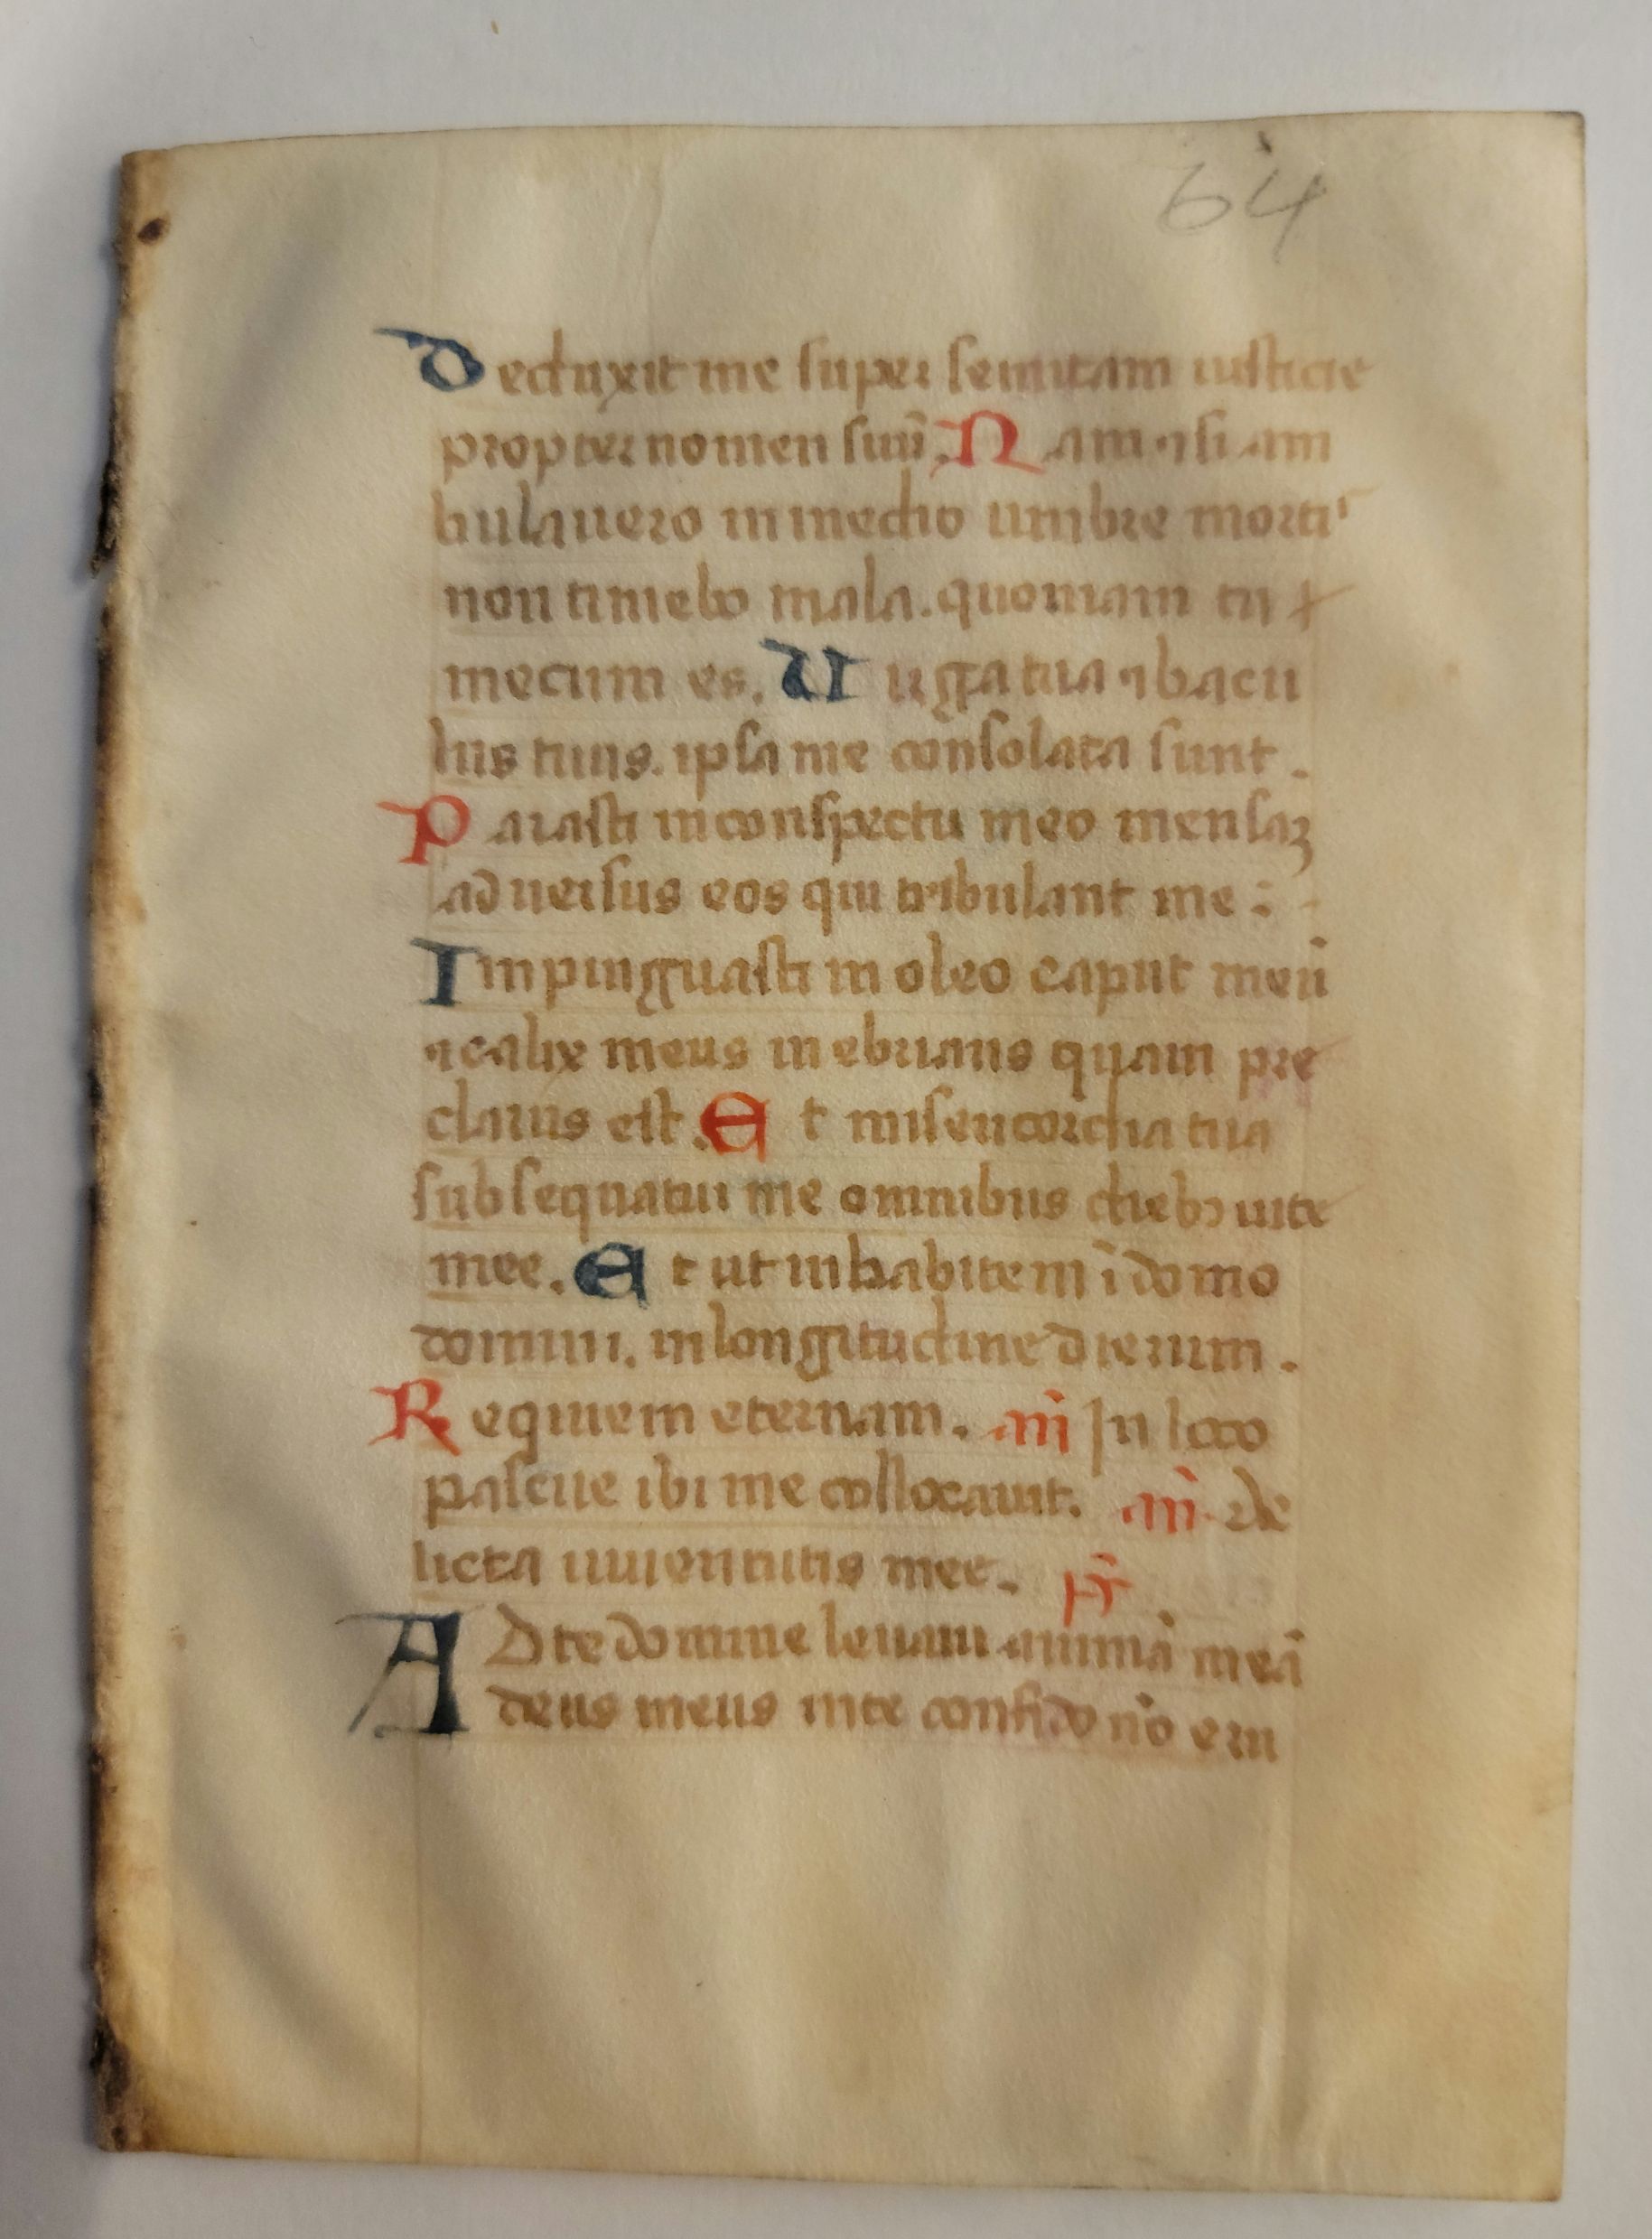 64
Deduxit me super semitam iusticie
propter nomen suū. Nam ⁊ si am
bulauero in medio umbre morti'
non timebo mala. quoniam tu
mecum es. Uirga tua ⁊ bacu
lus tuus. ipsa me consolata sunt.
Parasti in conspectu meo mensaꝫ
aduersus eos qui tribulant me:
Impinguasti in oleo caput meū
⁊ calix meus inebrians quam pre
clarus est. Et misericordia tua
subsequatur me omnibus diebꝫ uite
mee. Et ut inhabitem ī domo
domini. in longitudine dierum.
Requiem eternam. añ In loco
pascue ibi me collocauit. añ. de
licta iuuentutis mee. p̄s
AD te domine leuaui animā meā
deus meus in te confido nō eru